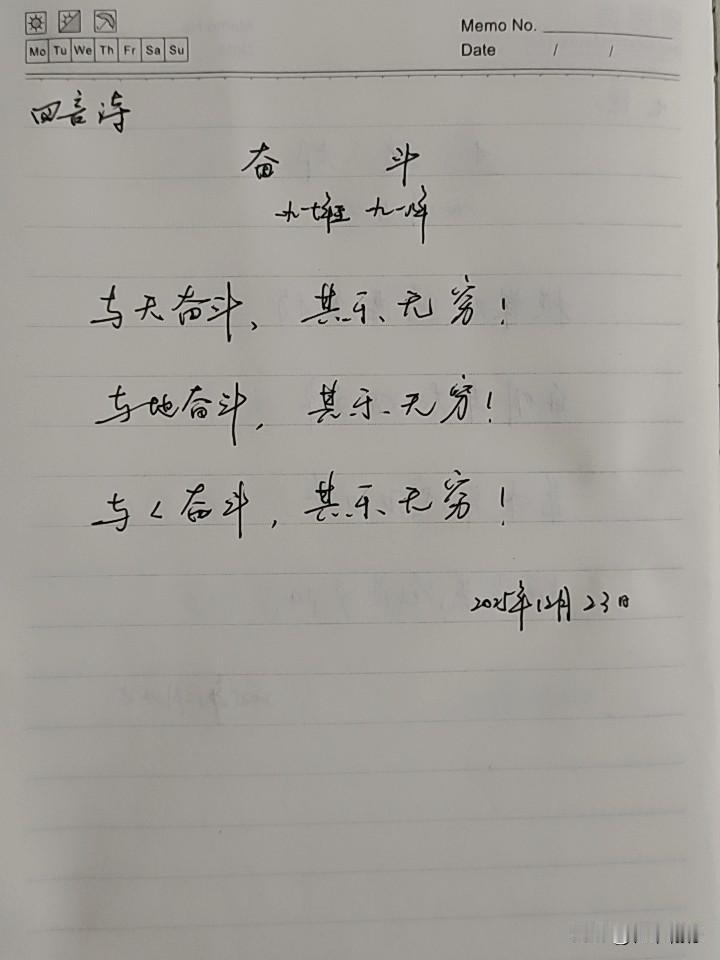 Mo Tu We Th Fr Sa Su
Memo No.
Date / /
四言诗
奋 斗
九一七年至九一八年
与天奋斗，其乐无穷！
与地奋斗，其乐无穷！
与人奋斗，其乐无穷！
2025年12月23日